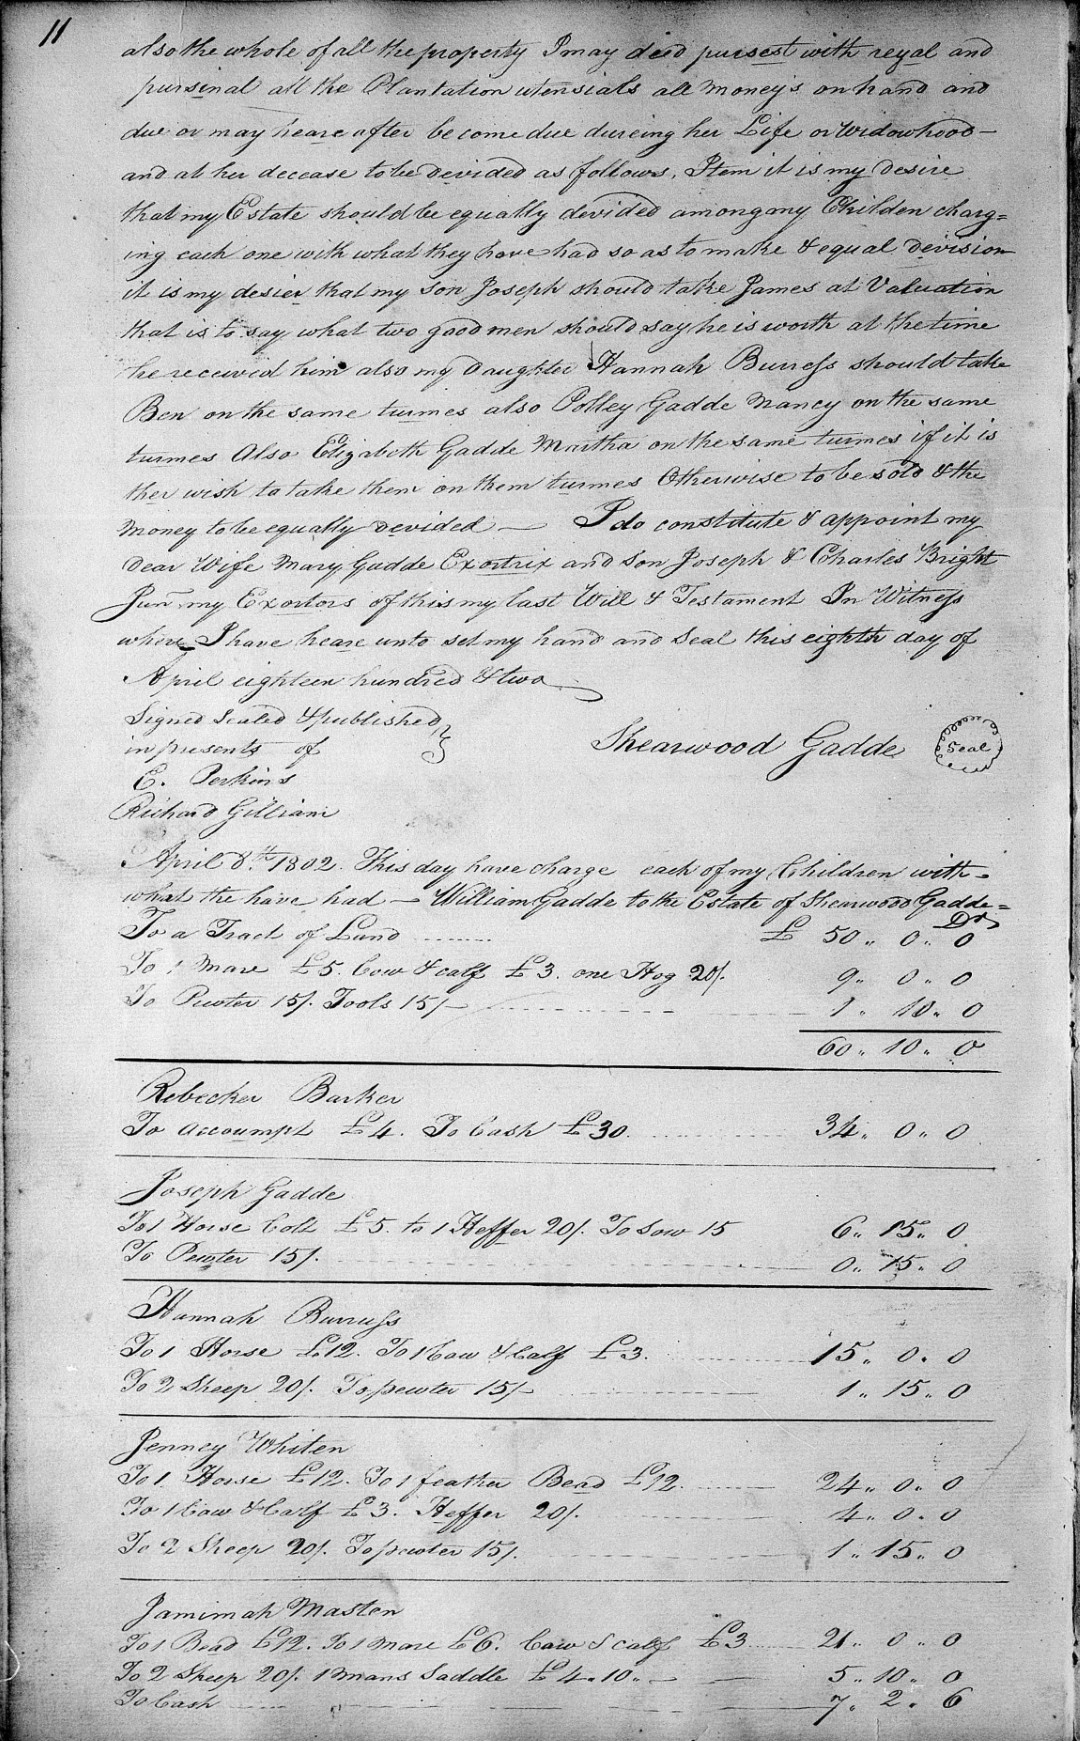 11
also the whole of all the property I may deid pursest with reyal and
pursinal all the Plantation utensials all money's on hand and
due or may heare after be come due dureing her Life or widowhood —
and at her decease to be devided as follows. Item it is my desire
that my Estate should be equally devided among my Childen charg=
ing each one with what they have had so as to make & equal devision
it is my desier that my son Joseph should take James at Valuation
that is to say what two good men should say he is worth at the time
he received him also my Daughter Hannah Burress should take
Ben on the same turmes also Polley Gadde Nancy on the same
turmes Also Elizabeth Gadde Martha on the same turmes if it is
ther wish to take them on them turmes Otherwise to be sold & the
money to be equally devided — I do constitute & appoint my
dear Wife Mary Gadde Exortrix and son Joseph & Charles Bright
Junr my Exortors of this my last Will & Testament In Witness
where I have heare unto set my hand and seal this eighth day of
April eighteen hundred & two
Signed Sealed & published
in presents of
Shearwood Gadde Seal
E. Perkins
Richard Gilliam
April 8th 1802. This day have charge each of my Children with
what the have had — William Gadde to the Estate of Shearwood Gadde =
Dr
To a Tract of Land ........ £ 50 „ 0 „ 0
To 1 Mare £5. Cow & calf £3. one Hog 20/. 9 „ 0 „ 0
To Pewter 15/. Tools 15/ 1 „ 10 „ 0
60 „ 10 „ 0
Rebecker Barker
To accoumpt £4. To Cash £30. 34 „ 0 „ 0
Joseph Gadde
To 1 Horse Colt £5. to 1 Heffer 20/. To Sow 15 6 „ 15 „ 0
To Pewter 15/. 0 „ 15 „ 0
Hannah Burruss
To 1 Horse £12. To 1 Cow & Calf £3. 15 „ 0 „ 0
To 2 Sheep 20/. To pewter 15/ 1 „ 15 „ 0
Jenney Whiten
To 1 Horse £12. To 1 feather Bead £12. 24 „ 0 „ 0
To 1 Cow & Calf £3. Heffer 20/. 4 „ 0 „ 0
To 2 Sheep 20/. To pewter 15/. 1 „ 15 „ 0
Jamimah Masten
To 1 Bead £12. To 1 Mare £6. Cow & calf £3 21 „ 0 „ 0
To 2 Sheep 20/. 1 Mans Saddle £4 „ 10 „ — 5 „ 10 „ 0
To Cash 7 „ 2 „ 6